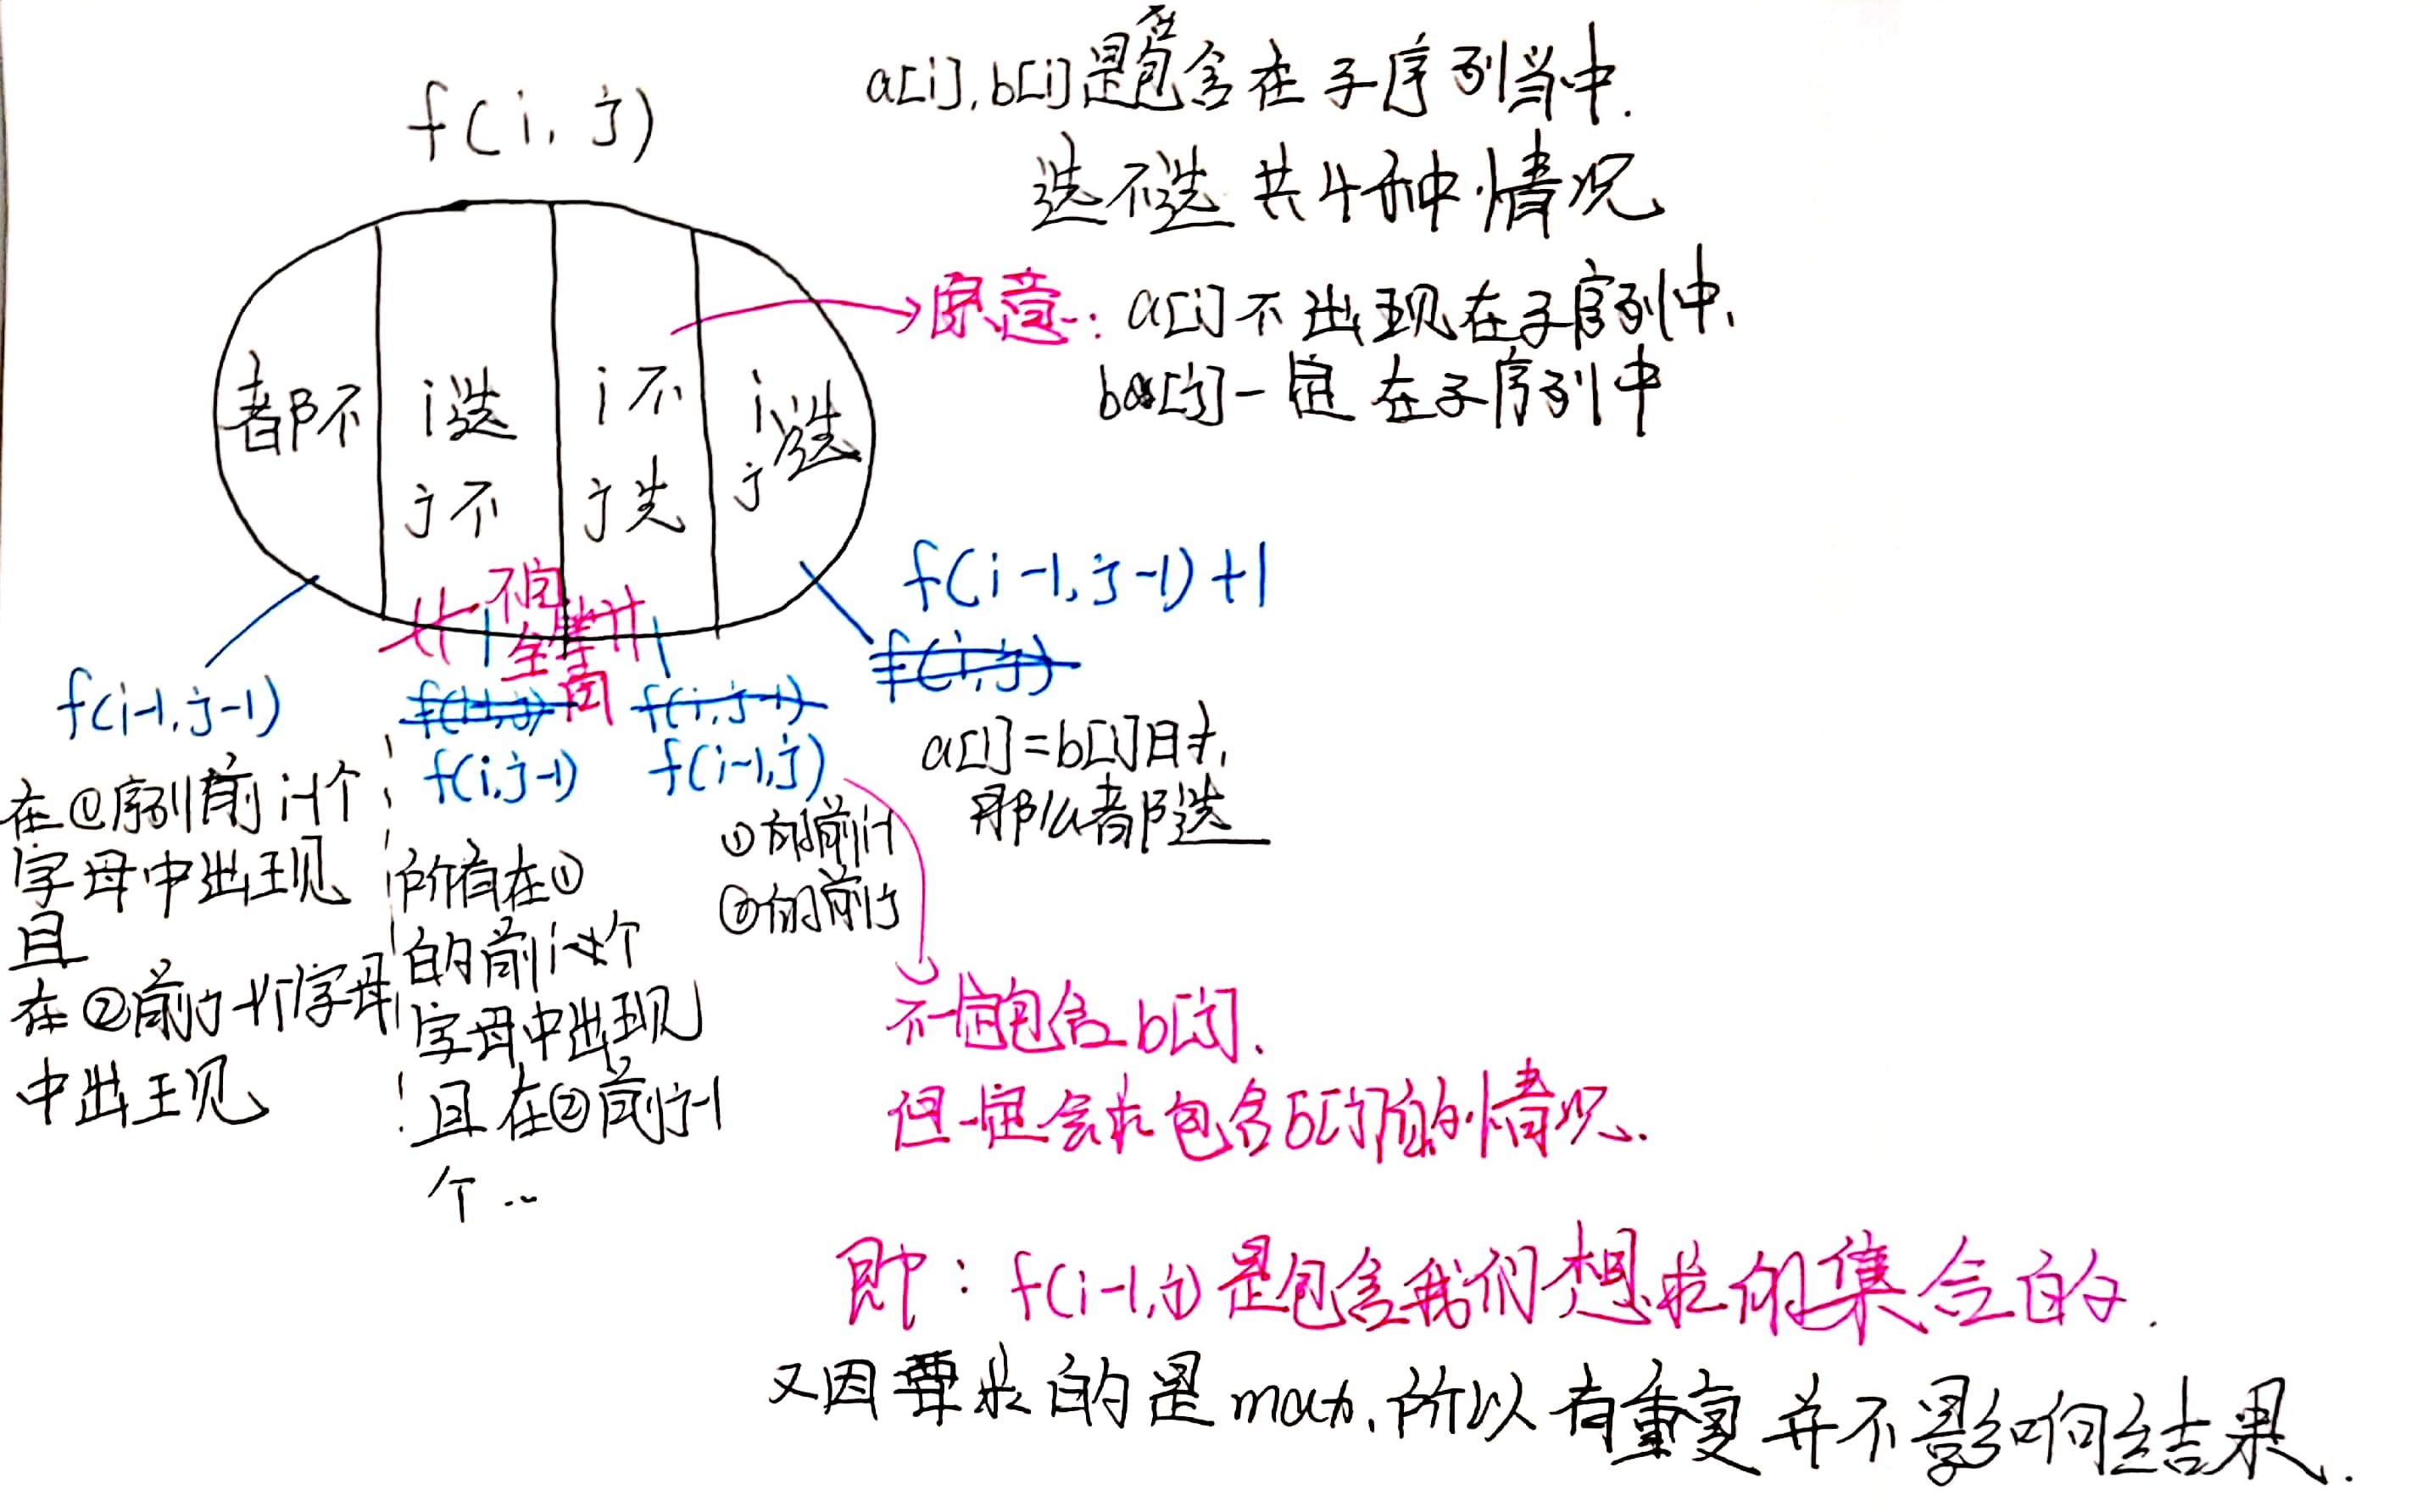 f(i, j)
a[i], b[i]是否包含在子序列当中.
选不选 共4种情况
原意: a[i]不出现在子序列中,
b[j]一定在子序列中
都不
i选
j不
i不
j选
i选
j
不完全等同
f(i-1, j-1)+1
f(i,j)
f(i-1, j-1)
f(i-1,j)
f(i,j-1)
f(i,j-1)
f(i-1,j)
a[i]=b[i]时,
那么都选
在①序列前i-1个
字母中出现
且
在②前j-1个字母
中出现
所有在①
的前i个
字母中出现
且在②前j-1
个..
①的前i-1
②的前j
不一定包含b[j].
但一定会求包含b[j]的情况.
即: f(i-1,j)是包含我们想求的集合的.
又因要求的是max,所以有重复并不影响结果.